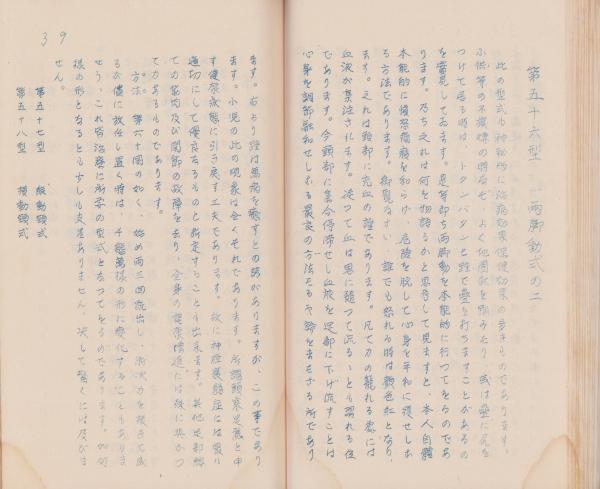 第五十六型 両脚動式の二
此の型式も神秘的に治病効果保健効果の多きものであります。
小供等の不機嫌の時などよく地団駄を踏みたり 或は畳に尻を
つけて居る時は、トタンバタンと踵で畳を打ちますことがあるの
を実見してゐます。是等即ち両脚動を本能的に行つてをるのであ
ります。乃ち之れは何を物語るかと思考して見ますと、本人自體
本能的に憤怒癇癪を和らげ、危險を脱して心身を平和に復せしむ
る方法であります。御覧なさい、誰でも怒れる時は顔色紅となり
ます。之れは頭部に充血の證であります。凡て力の籠れる處には
血液が集注されます。従つて血は思に随つて流る、とも謂れる位
であります。今頭部に集合停滞せし血液を足部に下げ流すことは
心身を調節融和せしむる最良の方法たる
ます。
ます。小児の此の現象は全くそれであります。所謂頭寒足熱と申
す健康状態に引き戻す工夫であります。故に神経衰弱症には最
適切にして優良なるものと断定することも出来ます。其他足部総
ての筋肉及び関節の故障を去り、全身の健康増進には殊に與かつ
て力あるものであります。
方法。第六十図の如く、始め両
るが儘に放任し置く時は、千態萬様の形に変化することもありま
せう、これ皆治療に必要の型式となつてをるのであります。如何
様の形となるとも少しも支差ありません、決して驚くには及びま
せん。
第五十七型 縦動顫式
第五十八型 横動顫式
39